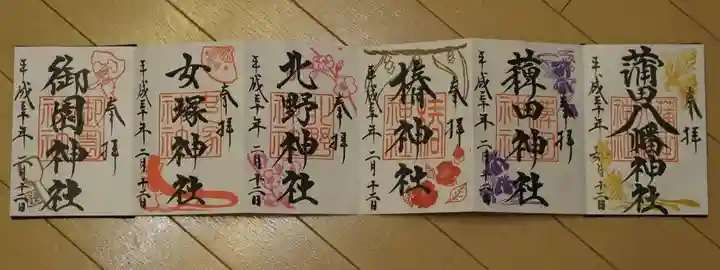 奉拝
蒲田八幡神社
平成三十年 二月十二日
奉拝
薭田神社
平成三十年 二月十二日
奉拝
椿神社
平成三十年 二月十二日
奉拝
北野神社
平成三十年 二月十二日
奉拝
女塚神社
平成三十年 二月十二日
奉拝
御園神社
平成三十年 二月十二日